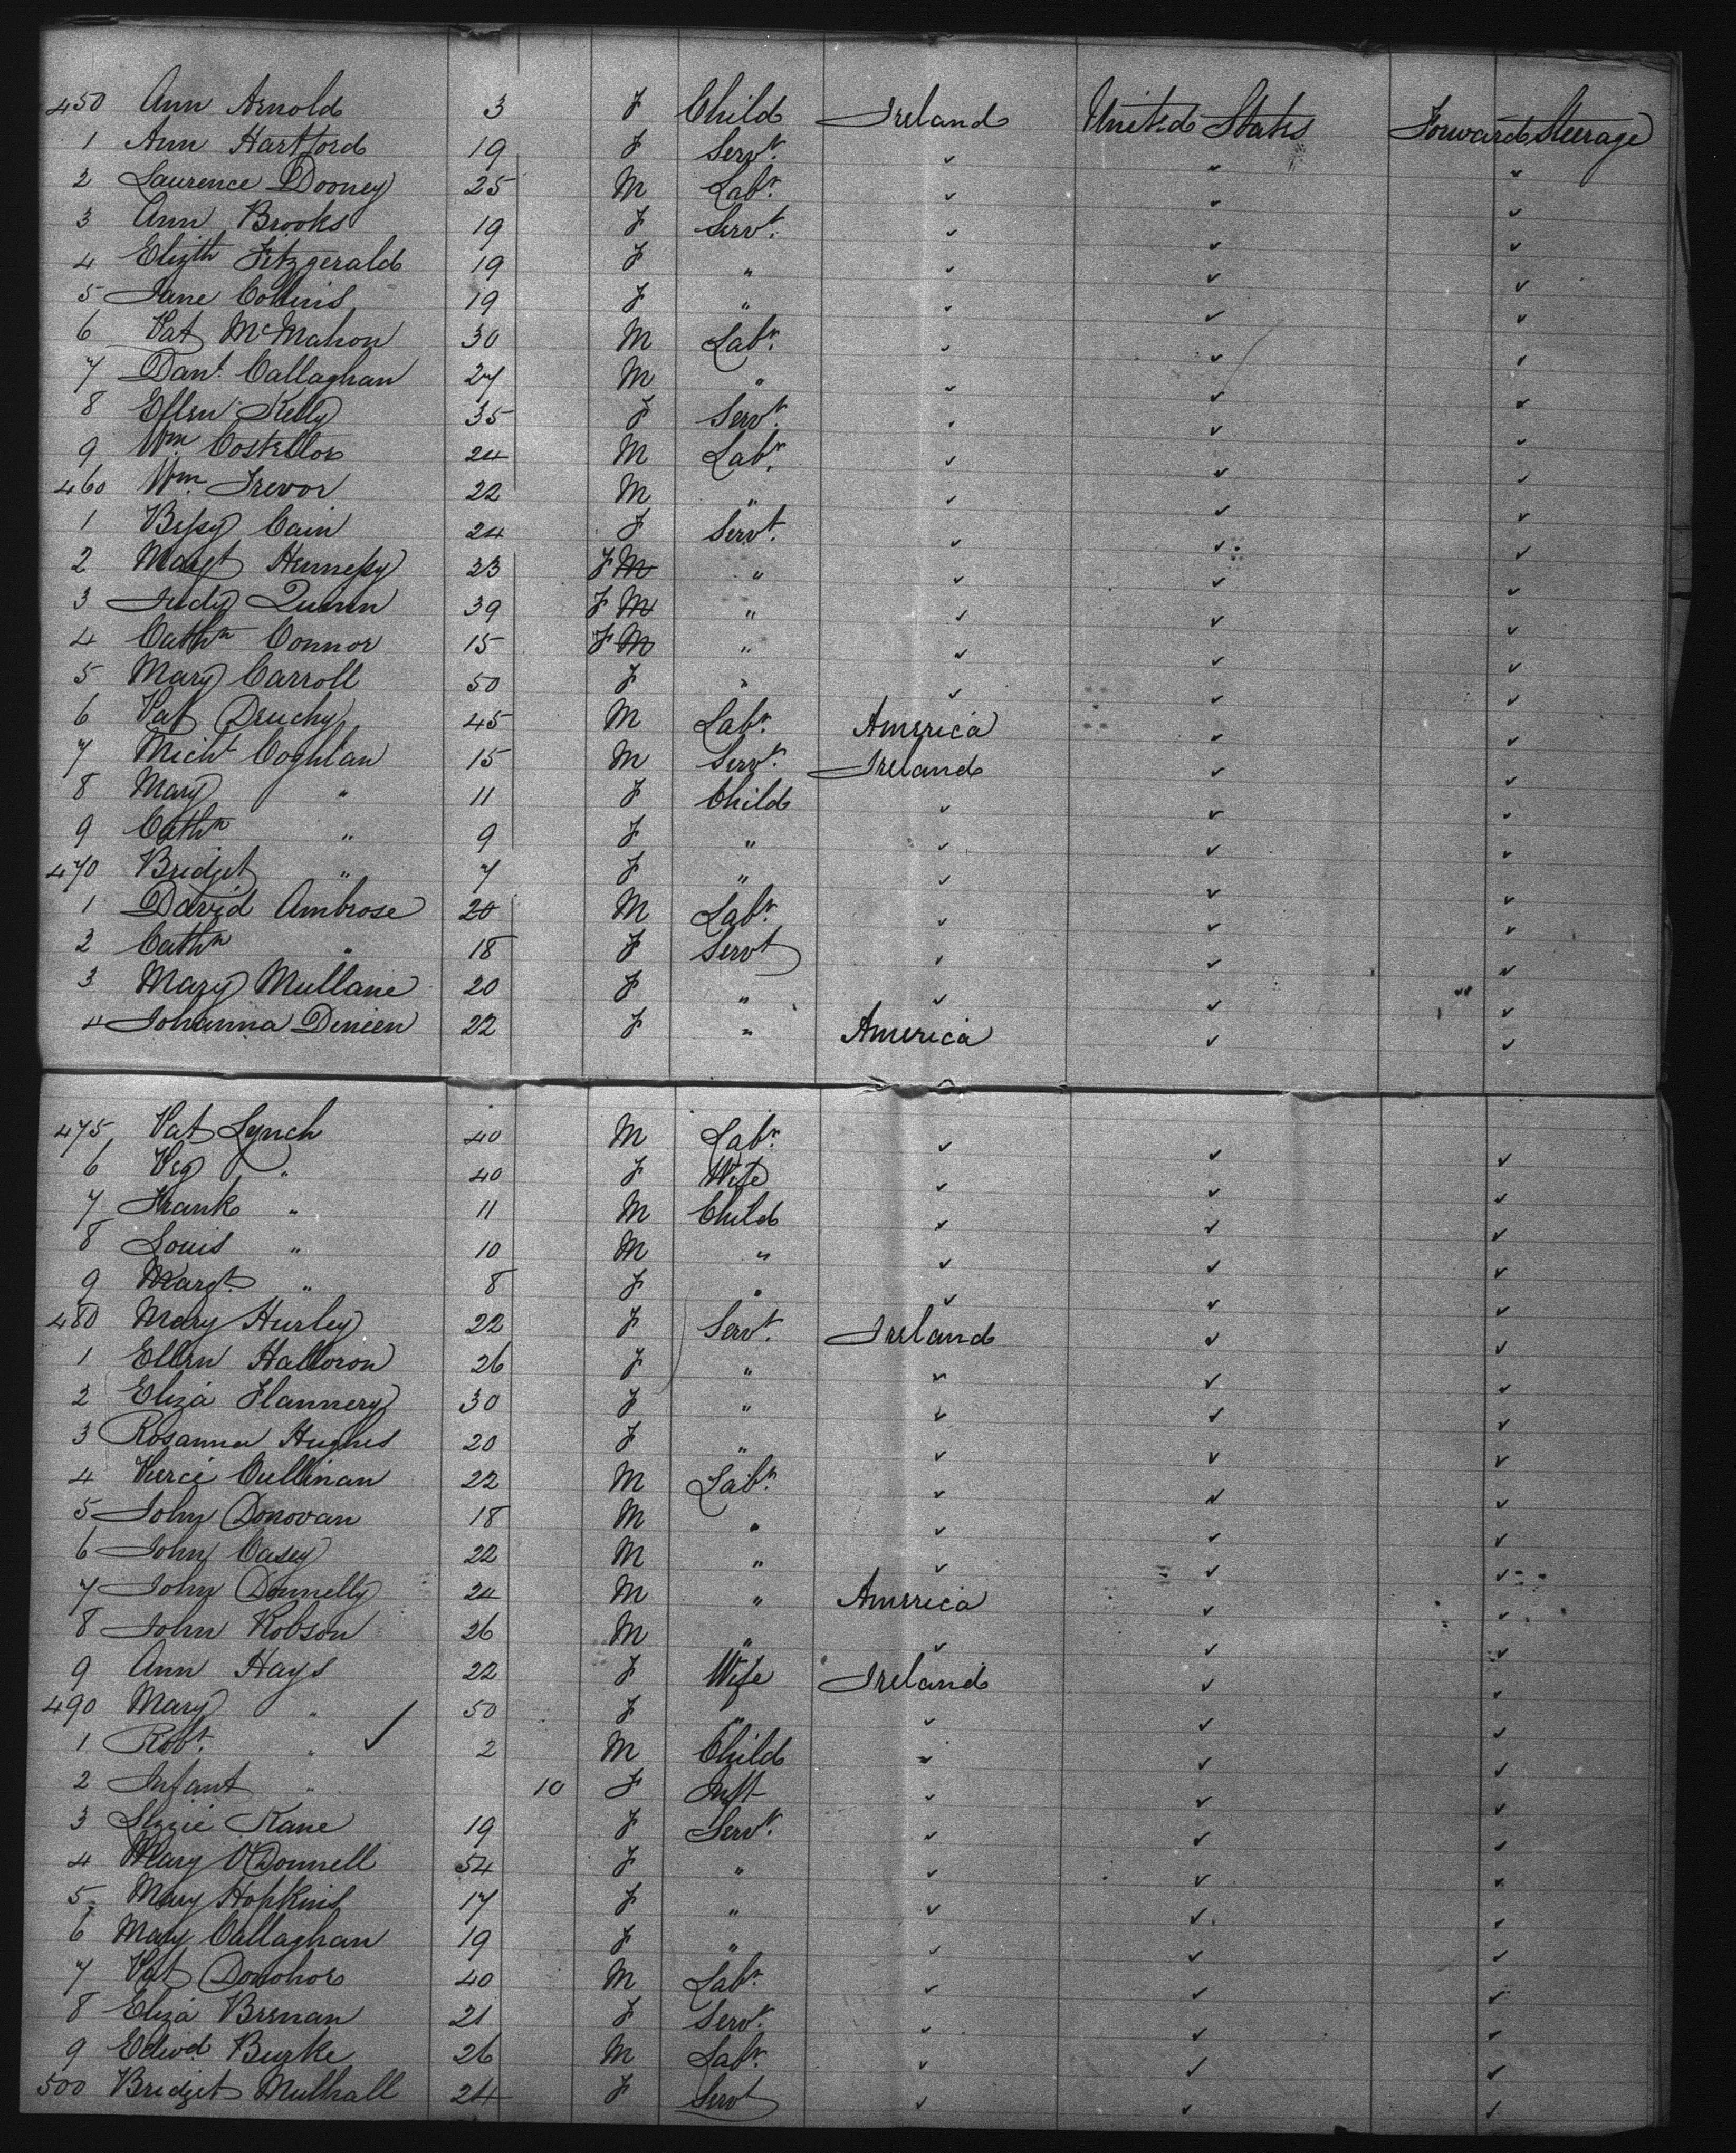 450 Ann Arnold 3 F Child Ireland United States Forward Steerage
1 Ann Hartford 19 F Servt. ✓ ✓ ✓
2 Laurence Dooney 25 M Labr. ✓ ✓ ✓
3 Ann Brooks 19 F Servt. ✓ ✓ ✓
4 Elizth Fitzgerald 19 F " ✓ ✓ ✓
5 Jane Collins 19 F " ✓ ✓ ✓
6 Pat McMahon 30 M Labr. ✓ ✓ ✓
7 Danl. Callaghan 27 M " ✓ ✓ ✓
8 Ellen Kelly 35 F Servt. ✓ ✓ ✓
9 Wm. Costelloe 24 M Labr. ✓ ✓ ✓
460 Wm. Trevor 22 M " ✓ ✓ ✓
1 Bessy Cain 24 F Servt. ✓ ✓ ✓
2 Margt Hennessy 23 F M " ✓ ✓ ✓
3 Judy Quinn 39 F M " ✓ ✓ ✓
4 Cathn Connor 15 F M " ✓ ✓ ✓
5 Mary Carroll 50 F " ✓ ✓ ✓
6 Pat Druchy 45 M Labr. America ✓ ✓
7 Michl Coghlan 15 M Servt. Ireland ✓ ✓
8 Mary " 11 F Child ✓ ✓ ✓
9 Cathn " 9 F " ✓ ✓ ✓
470 Bridget " 7 F " ✓ ✓ ✓
1 David Ambrose 20 M Labr. ✓ ✓ ✓
2 Cathn " 18 F Servt ✓ ✓ ✓
3 Mary Mullane 20 F " ✓ ✓ ✓
4 Johanna Dineen 22 F " America ✓ ✓
475 Pat Lynch 40 M Labr. ✓ ✓ ✓
6 Peg " 40 F Wife ✓ ✓ ✓
7 Frank " 11 M Child ✓ ✓ ✓
8 Louis " 10 M " ✓ ✓ ✓
9 Margt. " 8 F " ✓ ✓ ✓
480 Mary Hurley 22 F Servt. Ireland ✓ ✓
1 Ellen Halloron 26 F " ✓ ✓ ✓
2 Eliza Flannery 30 F " ✓ ✓ ✓
3 Rosanna Hughes 20 F " ✓ ✓ ✓
4 Pierce Cullinan 22 M Labr. ✓ ✓ ✓
5 John Donovan 18 M " ✓ ✓ ✓
6 John Casey 22 M " ✓ ✓ ✓
7 John Donnelly 24 M " America ✓ ✓
8 John Robson 26 M " ✓ ✓ ✓
9 Ann Hays 22 F Wife Ireland ✓ ✓
490 Mary " 50 F " ✓ ✓ ✓
1 Robt. " ✓ 2 M Child ✓ ✓ ✓
2 Infant " 10 F Inft ✓ ✓ ✓
3 Lizzie Kane 19 F Servt. ✓ ✓ ✓
4 Mary O'Donnell 54 F " ✓ ✓ ✓
5 Mary Hopkins 17 F " ✓ ✓ ✓
6 Mary Callaghan 19 F " ✓ ✓ ✓
7 Pat Donohoe 40 M Labr. ✓ ✓ ✓
8 Eliza Brenan 21 F Servt. ✓ ✓ ✓
9 Edwd. Burke 26 M Labr. ✓ ✓ ✓
500 Bridget Mulhall 24 F Servt ✓ ✓ ✓